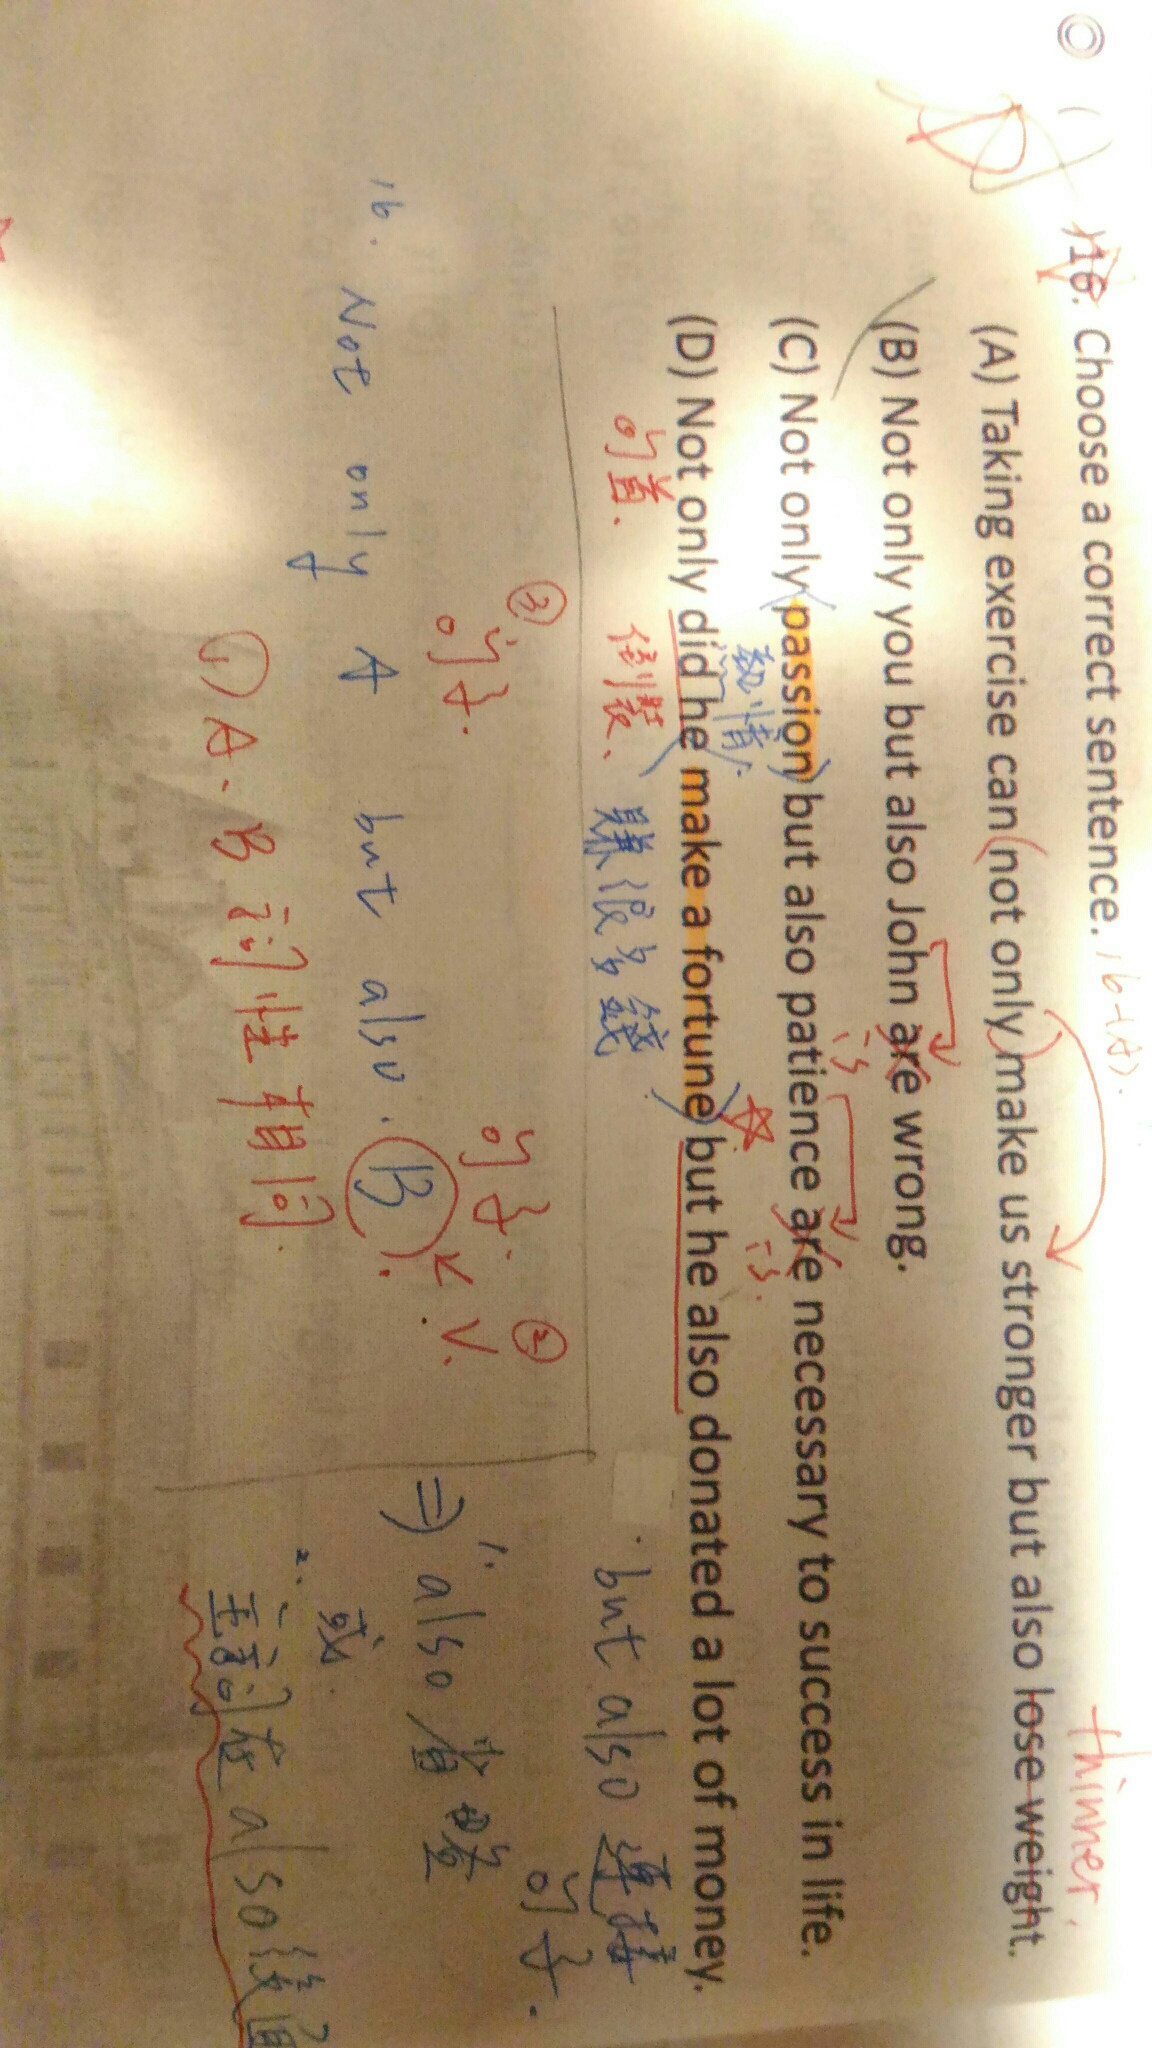 16. Choose a correct sentence. 16-(A).
thinner.
(A) Taking exercise can not only make us stronger but also lose weight.
(B) Not only you but also John are wrong.
is
(C) Not only passion but also patience are necessary to success in life.
熱情
is.
(D) Not only did he make a fortune but he also donated a lot of money.
句首. 倒裝、 賺很多錢
but also 連接
句子.
③ ②
句子. 句子. V.
16. Not only A but also B.
① A. B 詞性相同.
⇒ 1. also 省略
或
2. 主詞在 also 後面